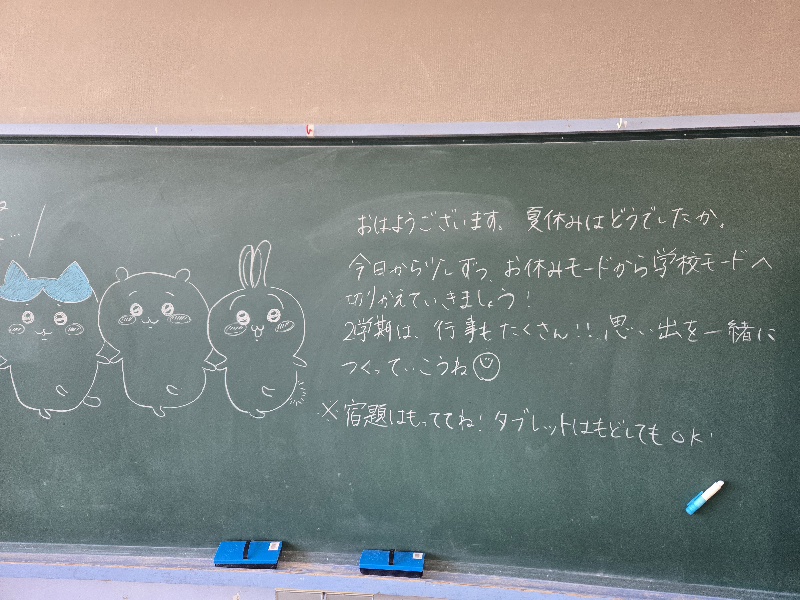 おはようございます。 夏休みはどうでしたか。
今日から少しずつ、お休みモードから学校モードへ
切りかえていきましょう!
2学期は、行事もたくさん!! 思い出を一緒に
つくっていこうね
※宿題はもっててね! タブレットはもどしてもOK!